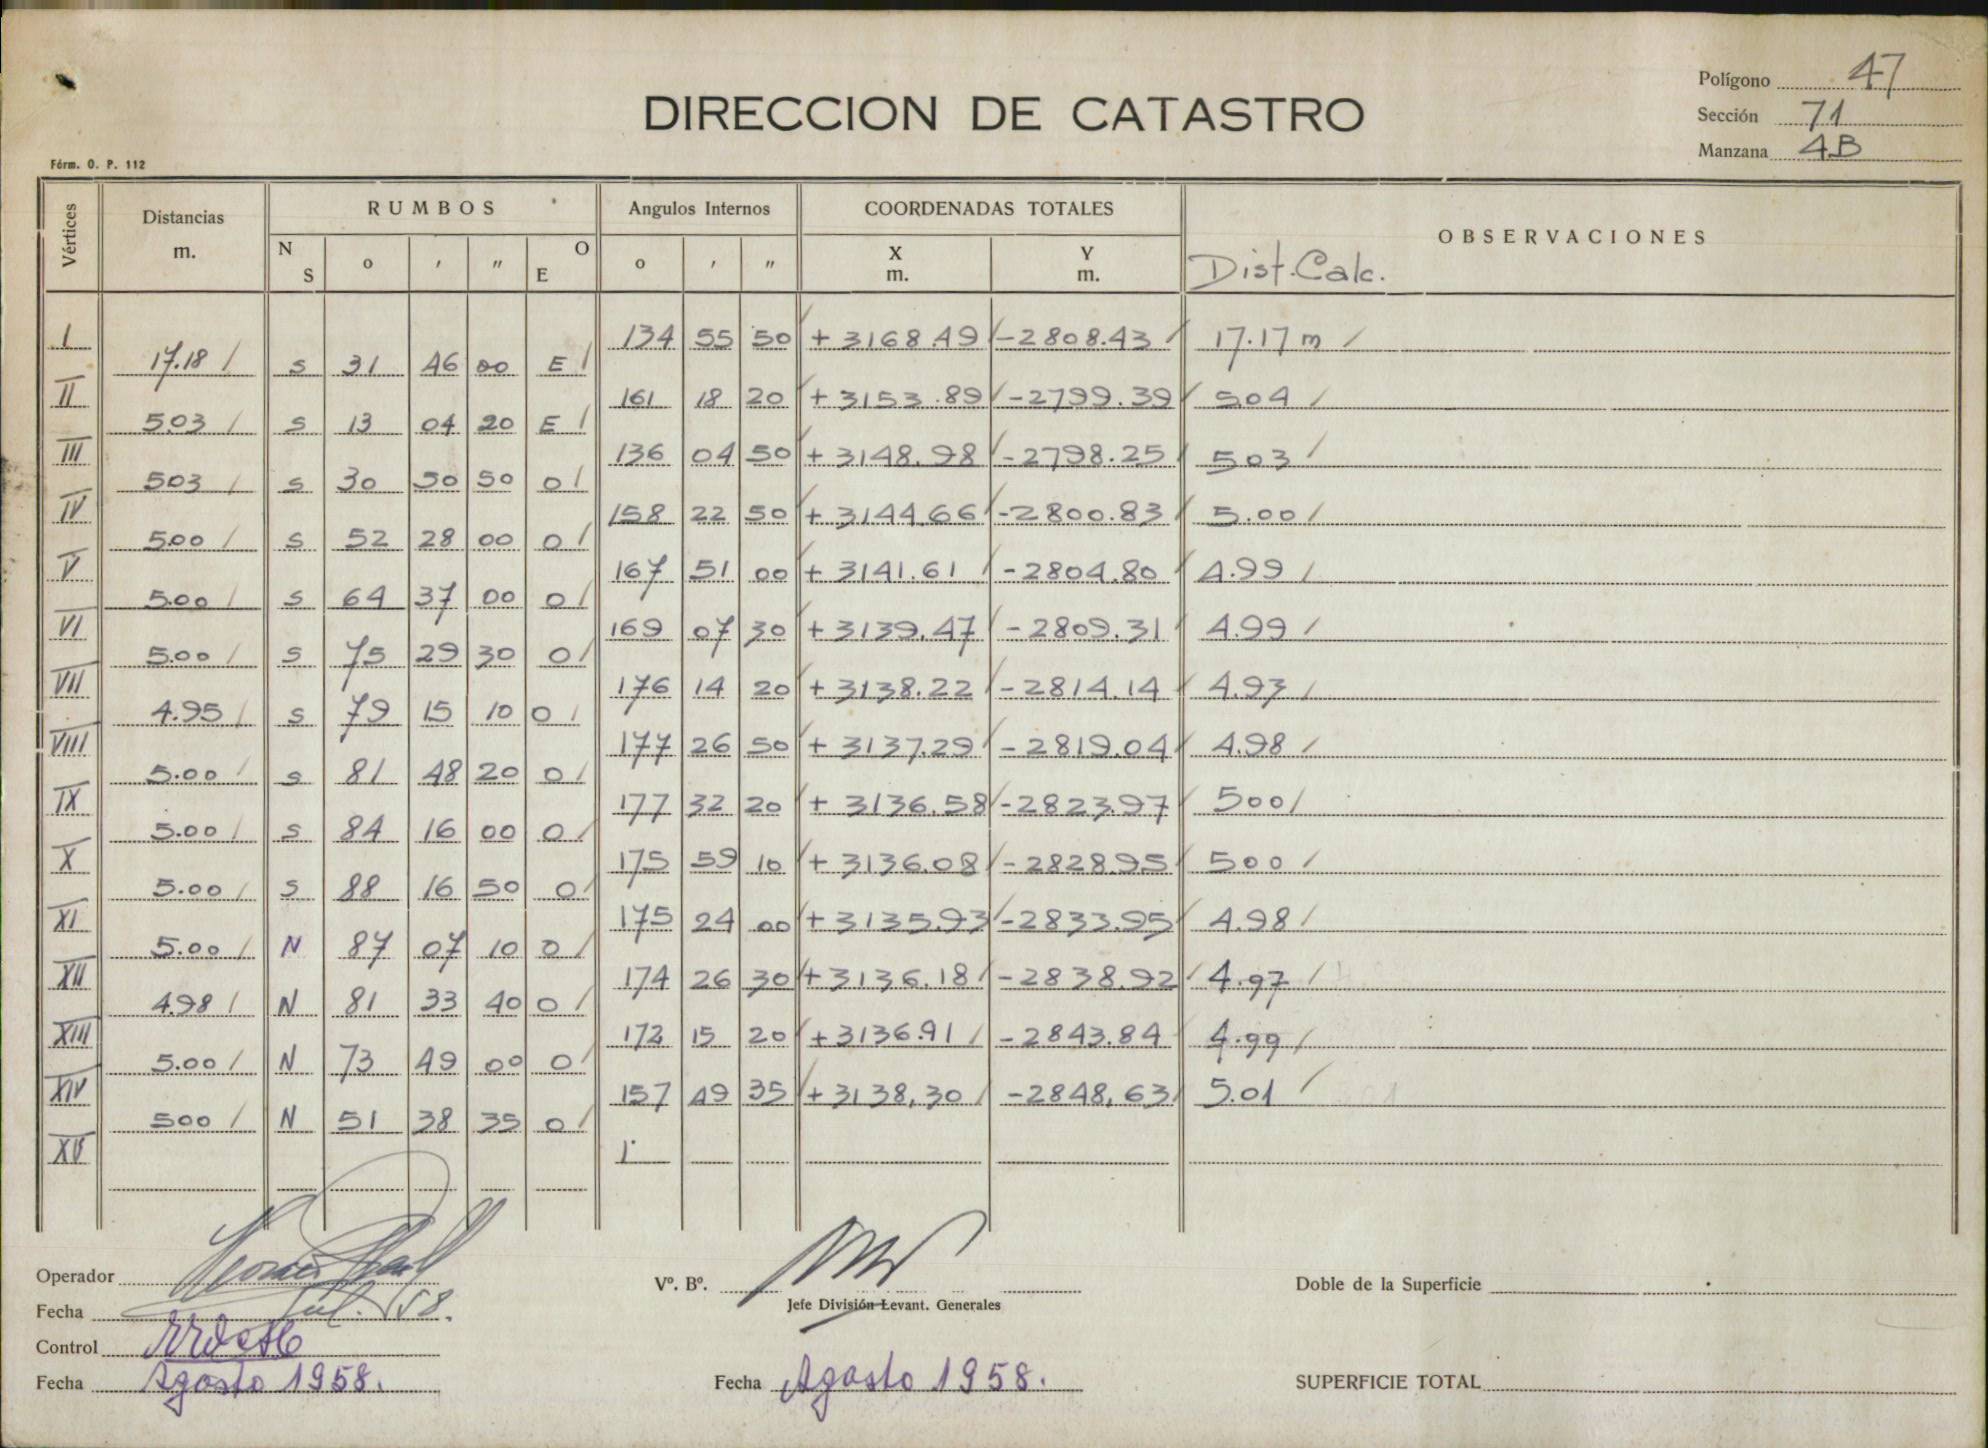 Polígono 47
DIRECCION DE CATASTRO
Sección 71
Manzana 4B
Fórm. O. P. 112
Vértices Distancias m. RUMBOS Angulos Internos COORDENADAS TOTALES OBSERVACIONES
N S o ' " O E o ' " X m. Y m. Dist. Calc.
I 134 55 50 + 3168.49 -2808.43 17.17 m
17.18 S 31 46 00 E
II 161 18 20 + 3153.89 -2799.39 5.04
5.03 S 13 04 20 E
III 136 04 50 + 3148.98 -2798.25 5.03
5.03 S 30 50 50 O
IV 158 22 50 + 3144.66 -2800.83 5.00
5.00 S 52 28 00 O
V 167 51 00 + 3141.61 -2804.80 4.99
5.00 S 64 37 00 O
VI 169 07 30 + 3139.47 -2809.31 4.99
5.00 S 75 29 30 O
VII 176 14 20 + 3138.22 -2814.14 4.93
4.95 S 79 15 10 O
VIII 177 26 50 + 3137.29 -2819.04 4.98
5.00 S 81 48 20 O
IX 177 32 20 + 3136.58 -2823.97 500
5.00 S 84 16 00 O
X 175 59 10 + 3136.08 -2828.95 500
5.00 S 88 16 50 O
XI 175 24 00 + 3135.93 -2833.95 4.98
5.00 N 87 07 10 O
XII 174 26 30 + 3136.18 -2838.92 4.97
4.98 N 81 33 40 O
XIII 172 15 20 + 3136.91 -2843.84 4.99
5.00 N 73 49 00 O
XIV 157 49 35 + 3138,30 -2848,63 5.01
500 N 51 38 35 O
XV
Operador
Vº. Bº.
Doble de la Superficie
Jefe División Levant. Generales
Fecha Jul. 58.
Control
Fecha Agosto 1958.
Fecha Agosto 1958.
SUPERFICIE TOTAL